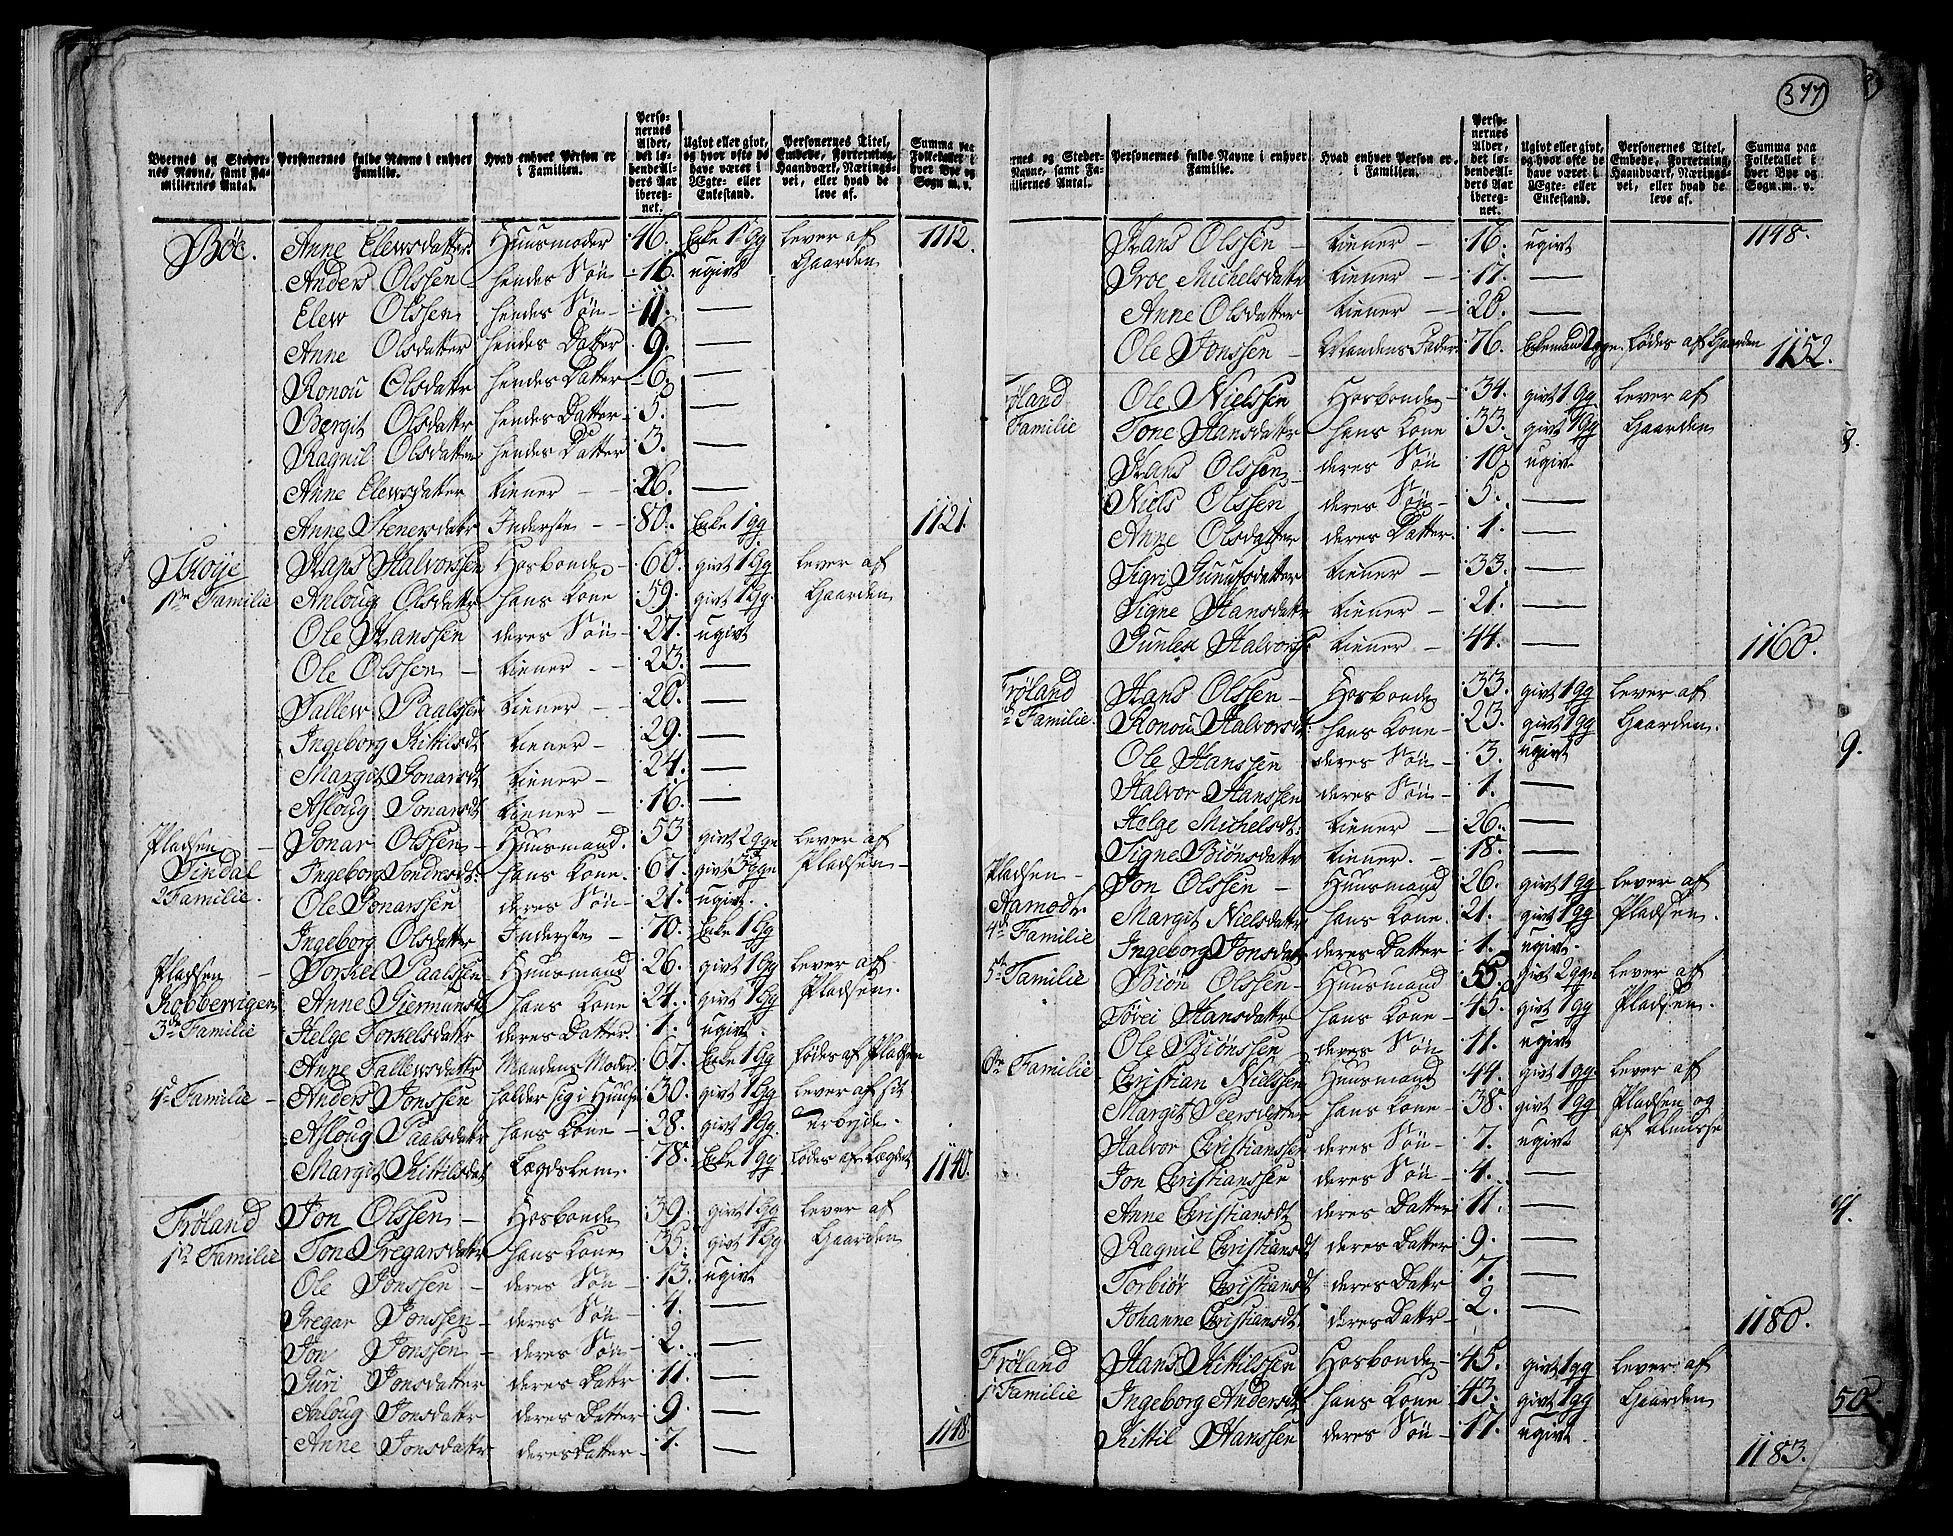 377
Byernes og Stedernes Navne, samt Familliernes Antal. | Personernes fulde Navne i enhver Familie. | Hvad enhver Person er i Familien. | Personernes Alder, det løbende Alders Aar iberegnet. | Ugivt eller givt, og hvor ofte de have været i Ægte- eller Enkestand. | Personernes Titel, Embede, Forretning, Haandværk, Næringsvei, eller hvad de leve af. | Summa paa Folketallet i hver Bye og Sogn m. v.
Bøe. Anne Elewsdatter Huusmoder 46. Enke 1 Gg lever af Gaarden 1112.
Anders Olssen hendes Søn 16. ugivt
Elew Olssen hendes Søn 11. —
Anne Olsdatter hendes Datter 9. —
Ronou Olsdattr hendes Datter 6. —
Bergit Olsdattr hendes Datter 5. —
Ragnil Olsdatter hendes Datter 3. —
Anne Elewsdatter tiener 26. —
Anne Stenersdatr Inderste 80. Enke 1 gg 1121.
Hans Halvorssen Hosbonde 60. givt 1 Gg lever af
1ste Familie Anloug Olsdattr hans Kone 59. givt 1 Gg. Gaarden
Ole Hanssen deres Søn 27. ugivt
Ole Olssen tiener 23. —
Tallew Paalssen tiener 20. —
Ingeborg Kittilsdt tiener 29. —
Margit Gonarsdt tiener 24. —
Asloug Gonarsdt tiener 16. —
Pladsen Gonar Olssen Huusmand. 53 givt 2 ggr lever af
Sindal Ingeborg Sondresdt. hans Kone. 67. givt 3 ggr Pladsen
2 Familie. Ole Gonarssen deres Søn 21. ugivt.
Ingeborg Olsdattr Inderste 70. Enke 1 Gg
Pladsen Torkel Paalssen Huusmand 26. givt 1 Gg lever af
Kobbervigen Anne Giermunsdt hans Kone 24. givt 1 Gg Pladsen.
3de Familie Helge Torkelsdattr deres Datter 1. ugivt.
Anne Tallewsdattr Mandens Moder 67. Enke 1 Gg fødes af Pladsen
4de Familie Anders Jonssen holder sig i Huuse 30. givt 1 Gg lever af sit
Asloug Paalsdattr hans Kone 38. givt 1 Gg.
Margit Kittilsdat Lægdslem. 78. Enke 1 gg fødes af Lægdet 1140.
Frøland Jon Olssen Hosbonde 39. givt 1 Gg lever af
1ste Familie Tone Gregarsdattr hans Kone 35. givt 1 Gg Gaarden
Ole Jonssen deres Søn 13. ugivt
Gregar Jonssen deres Søn 4. —
Jon Jonssen deres Søn 2. —
Guri Jonsdatter deres Dattr 11. —
Anloug Jonsdattr deres Datter 9. —
Anne Jonsdattr deres Datter 7. — 1148.
ernes og Steder-
Navne, samt Fa-
illiernes Antal. | Personernes fulde Navne i enhver Familie. | Hvad enhver Person er i Familien. | Personernes Alder, det løbende Alders Aar iberegnet. | Ugivt eller givt, og hvor ofte de have været i Ægte- eller Enkestand. | Personernes Titel, Embede, Forretning, Haandværk, Næringsvei, eller hvad de leve af. | Summa paa Folketallet i hver Bye og Sogn m. v.
Hans Olssen tiener 16. ugivt 1148.
Groe Michelsdatter tiener 17. —
Anne Olsdatter tiener 20. —
Ole Jonssen Mandens Fader 76. Enkemand 2 ggr. fødes af Gaarden 1152.
røland Ole Nielssen Hosbonde 34. givt 1 Gg lever af
Familie Tone Hansdattr hans Kone 33. givt 1 Gg Gaarden
Hans Olssen deres Søn 10. ugivt
Niels Olssen deres Søn 5. —
Anne Olsdatter deres Datter. 1. —
Sigri Gunufsdatter tiener 33. —
Signe Hansdattr tiener 21. —
Gunlew Halvorss. tiener 44. — 1160.
Frøland Hans Olssen Hosbonde 33. givt 1 gg lever af
Familie. Ronou Halvorsdt. hans Kone 23. givt 1 gg Gaarden.
Ole Hanssen deres Søn 3. ugivt
Halvor Hanssen deres Søn 1. —
Helge Michelsdt. tiener 26. —
Signe Biønsdattr tiener. 18. —
Pladsen Jon Olssen Huusmand 26. givt 1 gg lever af
Aamodt. Margit Nielsdattr hans Kone. 21. givt 1 gg Pladsen.
4de Familie Ingeborg Jonsdatr deres Datter 1. ugivt.
5te Familie Biøn Olssen Huusmand 55. givt 2 ggr lever af
Tøvei Hansdattr hans Kone 45. givt 1 gg Pladsen.
Ole Biønssen deres Søn 11. ugivt
6te Familie Christian Nielssen Huusmand 44. givt 1 gg lever af
Margit Peersdatter hans Kone 38. givt 1 gg Pladsen og
Halvor Christianssen deres Søn 7. ugivt af Almisse
Jon Christianssen deres Søn 4. —
Anne Christiansdt deres Datter 11. —
Ragnil Christiansdt deres Datter 9. —
Torbiør Christiansdt deres Dattr 7. —
Johanne Christiansdt. deres Dattr 2. — 1180.
Frøland Hans Kittilssen Hosbonde 45. givt 1 gg lever af
1ste Familie Ingeborg Andersdt hans Kone 43. givt 1 gg Gaarden
Kittil Hanssen deres Søn 17. ugivt. 1183.
8.
9.
4.
50.